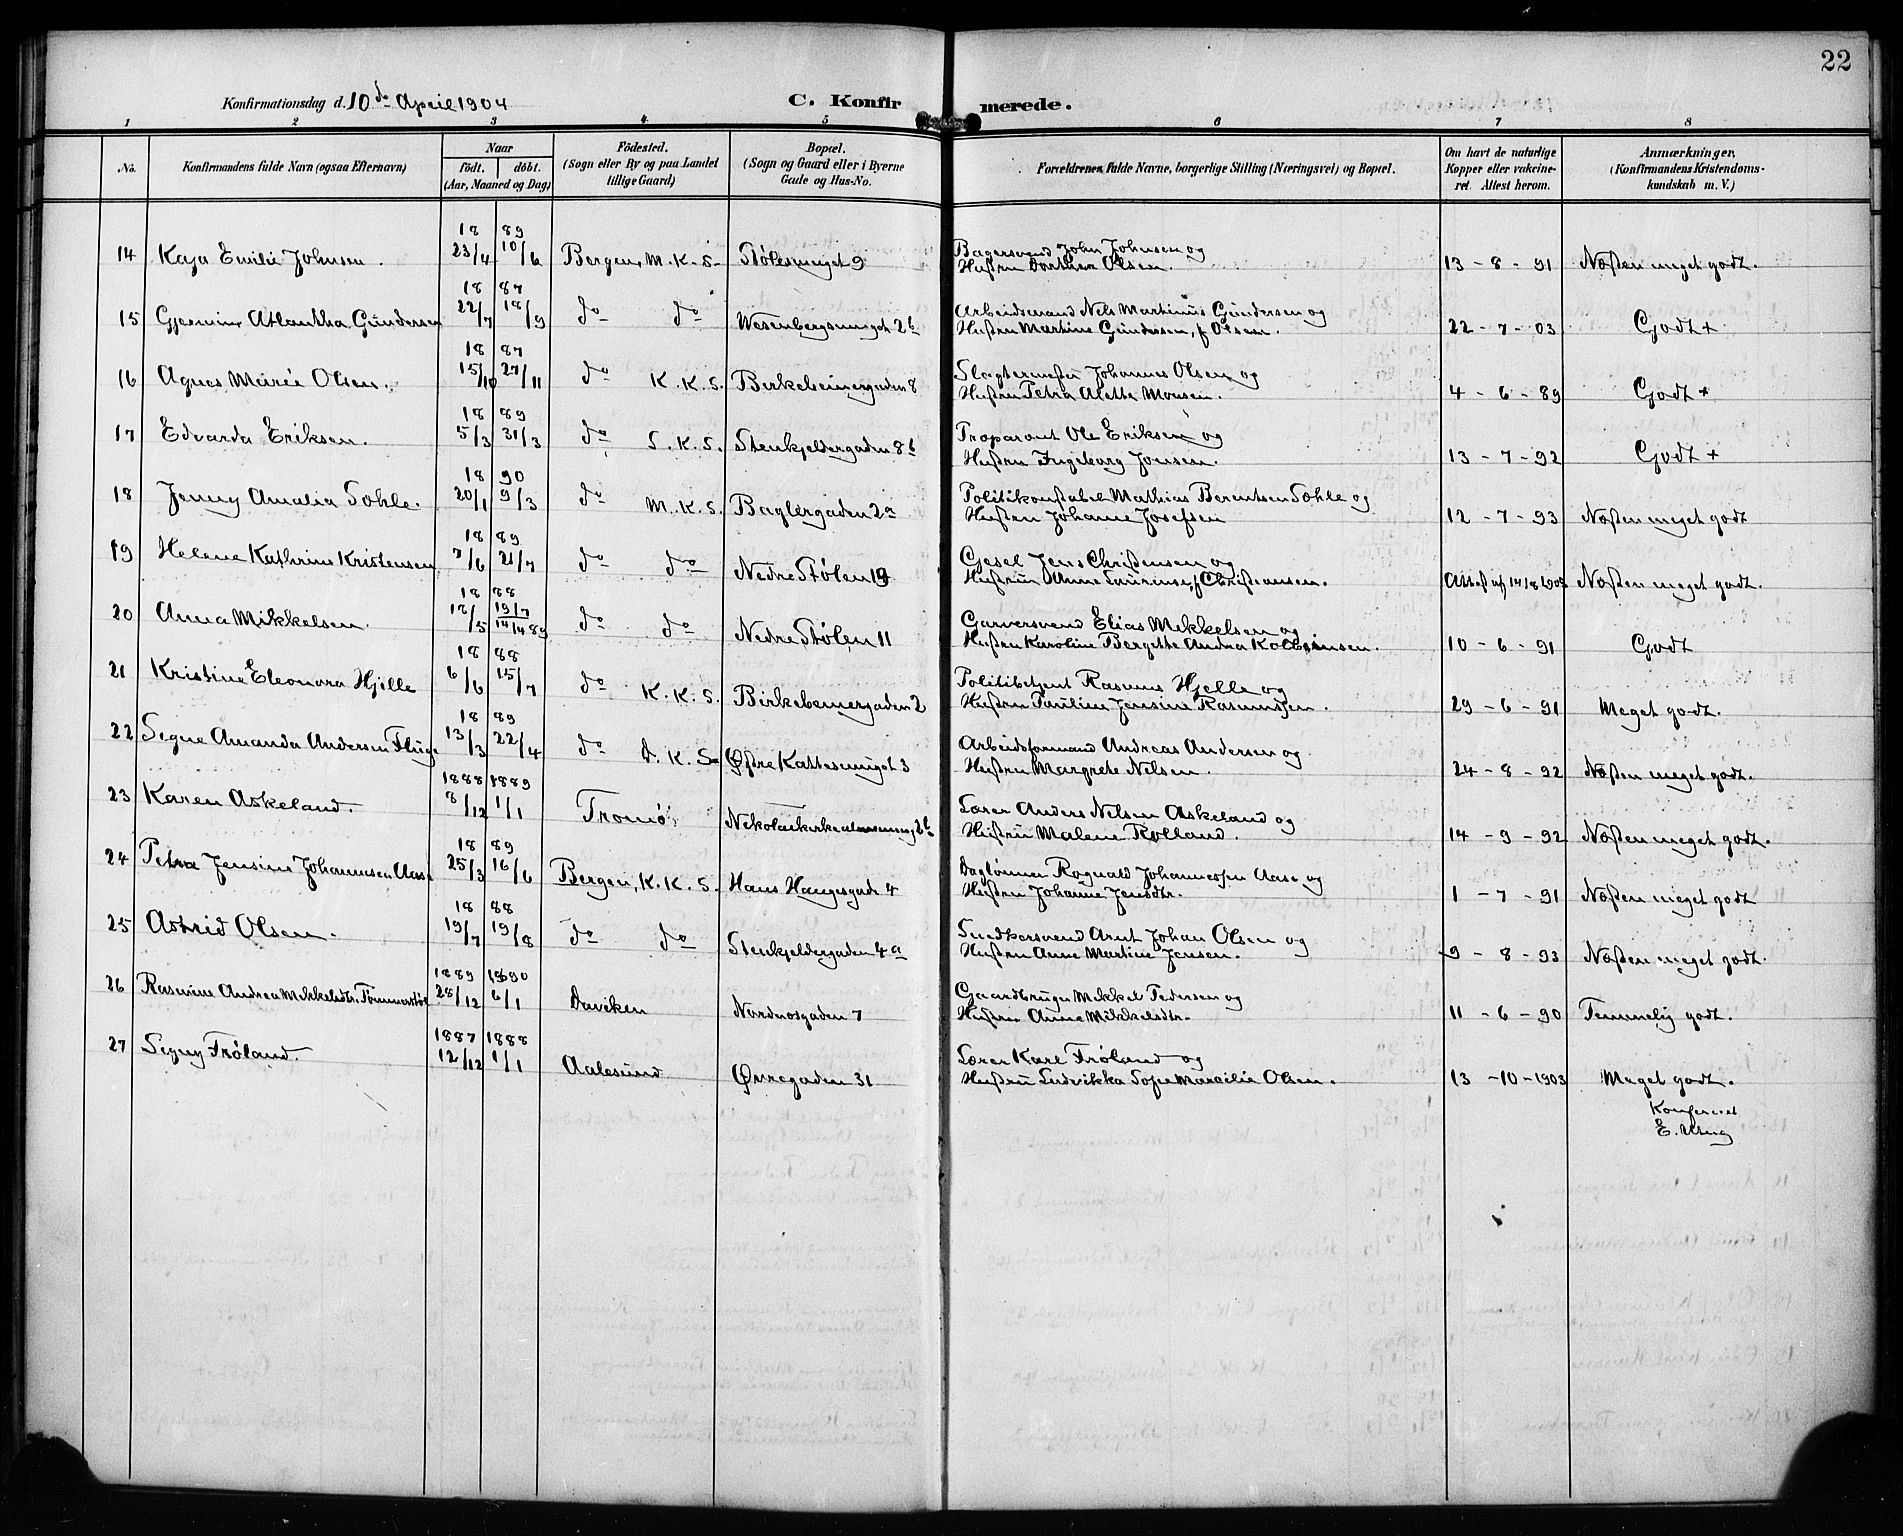 22
Konfirmationsdag d. 10de April 1904 C. Konfirmerede.
1 2 3 4 5 6 7 8
No. Konfirmandens fulde Navn (ogsaa Efternavn) Naar født. døbt. (Aar, Maaned og Dag) Fødested. (Sogn eller By og paa Landet tillige Gaard) Bopæl. (Sogn og Gaard eller i Byerne Gade og Hus-No. Forældrenes fulde Navne, borgerlige Stilling (Næringsvei) og Bopæl. Om havt de naturlige Kopper eller vakcineret. Attest herom. Anmærkninger. (Konfirmandens Kristendomskundskab m. V.)
18 89
14 Kaja Emilie Johnsen. 23/4 10/6 Bergen, M. K. S. Stølesmuget 9 Bagersvend John Johnsen og
Hustru Dorthea Olsen. 13 - 8 - 91 Næsten meget godt.
18 87
15 Gjermine Atlantha Gundersen 22/7 18/9 do do Wesenbergsmuget 2b Arbeidsmand Nels Martinus Gundersen og
Hustru Martine Gundersen, f Olsen. 22 - 7 - 03 Godt +
18 87
16 Agnes Marie Olsen. 15/10 27/11 do K. K. S. Birkebeinergaden 8 Slagtermester Johannes Olsen og
Hustru Petra Aletta Monsen. 4 - 6 - 89 Godt +
18 89
17 Edvarda Eriksen. 5/3 31/3 do S. K. S. Stenkjeldergaden 8b Ole Eriksen og
Hustru Ingeborg Jonsen. 13 - 7 - 92 Godt +
18 90
18 Jenny Amalia Søhle. 20/1 9/3 do M. K. S. Baglergaden 2a Politikonstabel Mathias Berentsen Søhle og
Hustru Johanne Josefsen 12 - 7 - 93 Næsten meget godt
18 89
19 Helene Kathrine Kristensen 7/6 21/7 do do Nedre Stølen 19 Gjesel Jens Christensen og
Hustru Anne Laurinse, f Christiansen. Attest af 14/8 1903 Næsten meget godt.
18 88
20 Anna Mikkelsen. 18/5 19/7 14/4 89 do do Nedre Stølen 11 Garversvend Elias Mikkelsen og
Hustru Karoline Bergitte Andrea Kolbeinsen. 10 - 6 - 91 Godt
18 88
21 Kristine Eleonora Hjelle 6/6 15/7 do K. K. S. Birkebeinergaden 2 Politibetjent Rasmus Hjelle og
Hustru Pauline Jensine Rasmussen. 29 - 6 - 91 Meget godt.
18 89
22 Signe Amanda Andersen Fluge 13/3 22/4 do D. K. S. Østre Kattesmuget 3 Arbeidsformand Andreas Andersen og
Hustru Margrete Nilsen. 24 - 8 - 92 Næsten meget godt.
1888 1889
23 Karen Askeland. 8/12 1/1 Tromø Nikolaikirkealmenning 2b Lærer Anders Nelsen Askeland og
Hustru Malene Rolland. 14 - 9 - 92 Næsten meget godt.
18 89
24 Petra Jensine Johannesen Aase 25/3 16/6 Bergen, K. K. S. Hans Haugesgade 4 Daglønner Rognald Johannessen Aase og
Hustru Johanne Jensdtr. 1 - 7 - 91 Næsten meget godt
18 88
25 Astrid Olsen. 19/7 19/8 do do Stenkjeldergaden 4a Snedkersvend Arnt Johan Olsen og
Hustru Anne Martine Jensen. 9 - 8 - 93 Næsten meget godt.
1889 1890
26 Rasmine Andrea Mikkelsdtr. 28/12 6/1 Daviken Nordnesgaden 7 Gaardbruger Mikkel Pedersen og
Hustru Anne Mikkelsdtr. 11 - 6 - 90 Temmelig godt.
1887 1888
27 Signy Frøland. 12/12 1/1 Aalesund Øvregaden 31 Lærer Karl Frøland og
Hustru Ludvikka Sofie Marcilie Olsen. 13 - 10 - 1903 Meget godt.
Konfereret